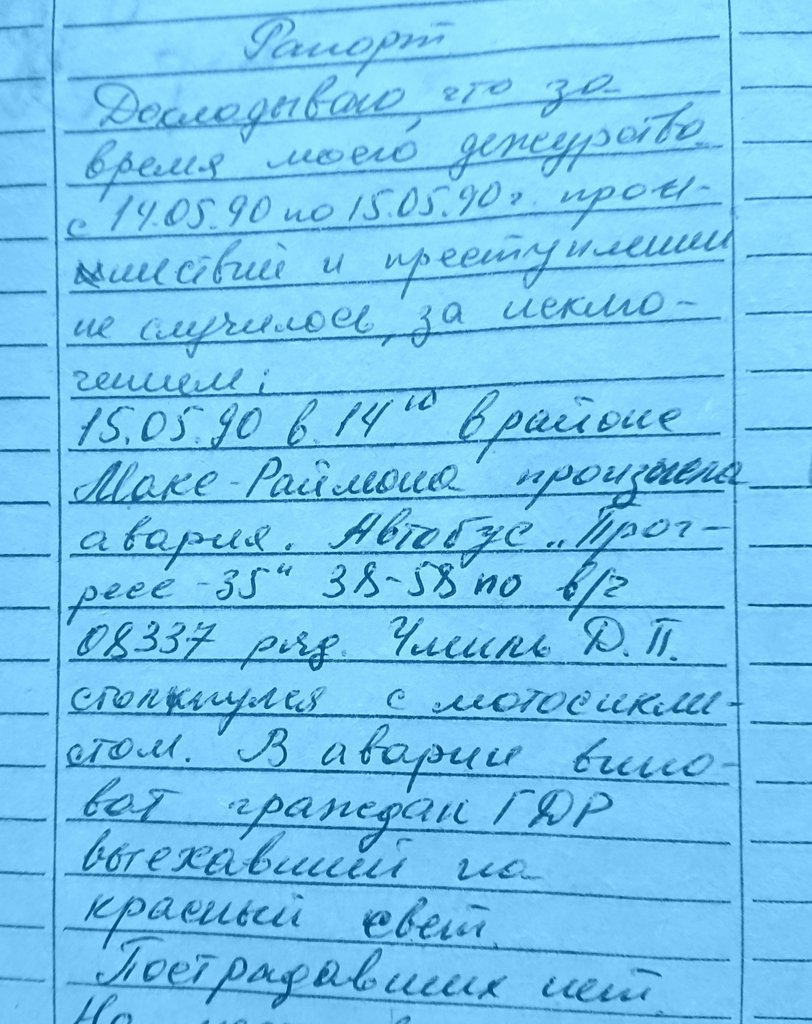 Рапорт
Докладываю, что за
время моего дежурства
с 14.05.90 по 15.05.90г. прои-
шествий и преступлений
не случилось, за исклю-
чением:
15.05.90 в 14 10 в районе
Макс-Раймона произошла
авария. Автобус „Прог-
ресс-35" 38-58 по в/ч
08337 ряд. Д.П.
столкнулся с мотосикли-
стом. В аварии вино-
ват граждан ГДР
выехавший на
красный свет.
Пострадавших нет.
На